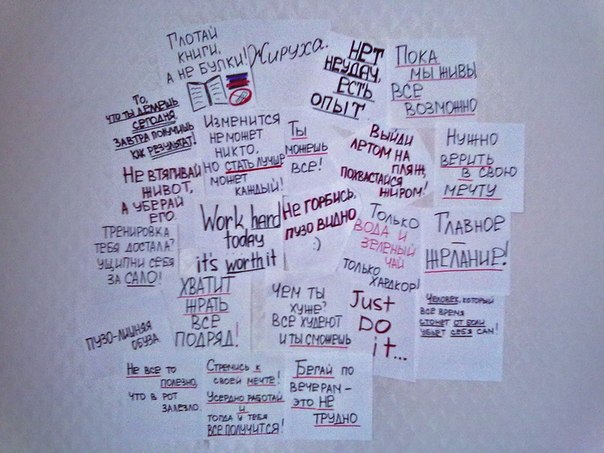 Глотай
книги,
а не булки!
Жируха.
Нет
неудач,
есть
опыт
Пока
мы живы
все
возможно
То,
что ты делаешь
сегодня,
завтра получишь
как результат!
Изменится
не может
никто,
но стать лучше
может
каждый!
Ты
можешь
все!
Выйди
летом на
пляж,
похвастайся
жиром!
Нужно
верить
в свою
мечту
Не втягивай
живот,
а убирай
его.
Work hard
today
it's worth it
Не горбись,
пузо видно
:)
Только
вода и
зеленый
чай
только
хардкор!
Главное
—
желание!
Тренировка
тебя достала?
Ущипни себя
за сало!
Пузо-лишняя
обуза
Хватит
жрать
все
подряд!
Чем ты
хуже?
Все худеют
и ты сможешь
Just
do
it...
Человек, который
все время
стонет от боли
убьет себя сам!
Не все то
полезно,
что в рот
залезло
Стремись к
своей мечте!
Усердно работай
и
тогда у тебя
все получится!
Бегай по
вечерам –
это не
трудно